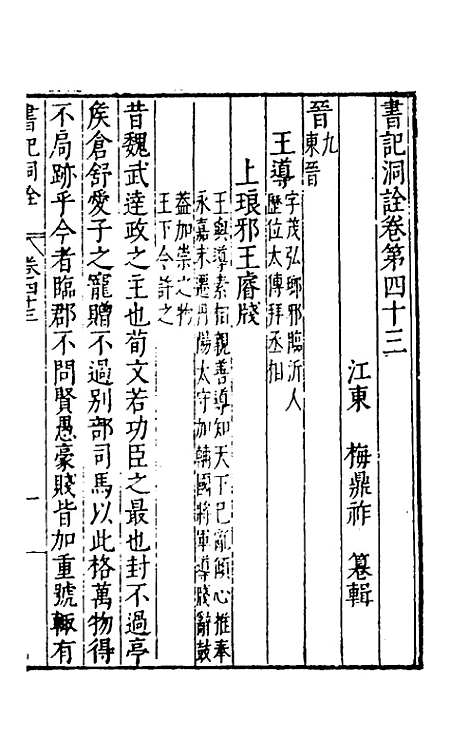 書記洞詮卷第四十三
江東 梅鼎祚 纂輯
晉九
東晉
王導
字茂弘瑯邪臨沂人
歷位太傅拜丞相
上琅邪王睿牋
王與導素相親善導知天下已亂傾心推奉
永嘉末遷丹陽太守加輔國將軍導牋辭鼓
蓋加崇之物
王下令許之
昔魏武達政之主也荀文若功臣之最也封不過亭
侯倉舒愛子之寵贈不過別部司馬以此格萬物得
不局跡乎今者臨郡不問賢愚豪賤皆加重號輒有
書記洞詮 卷四十三 一